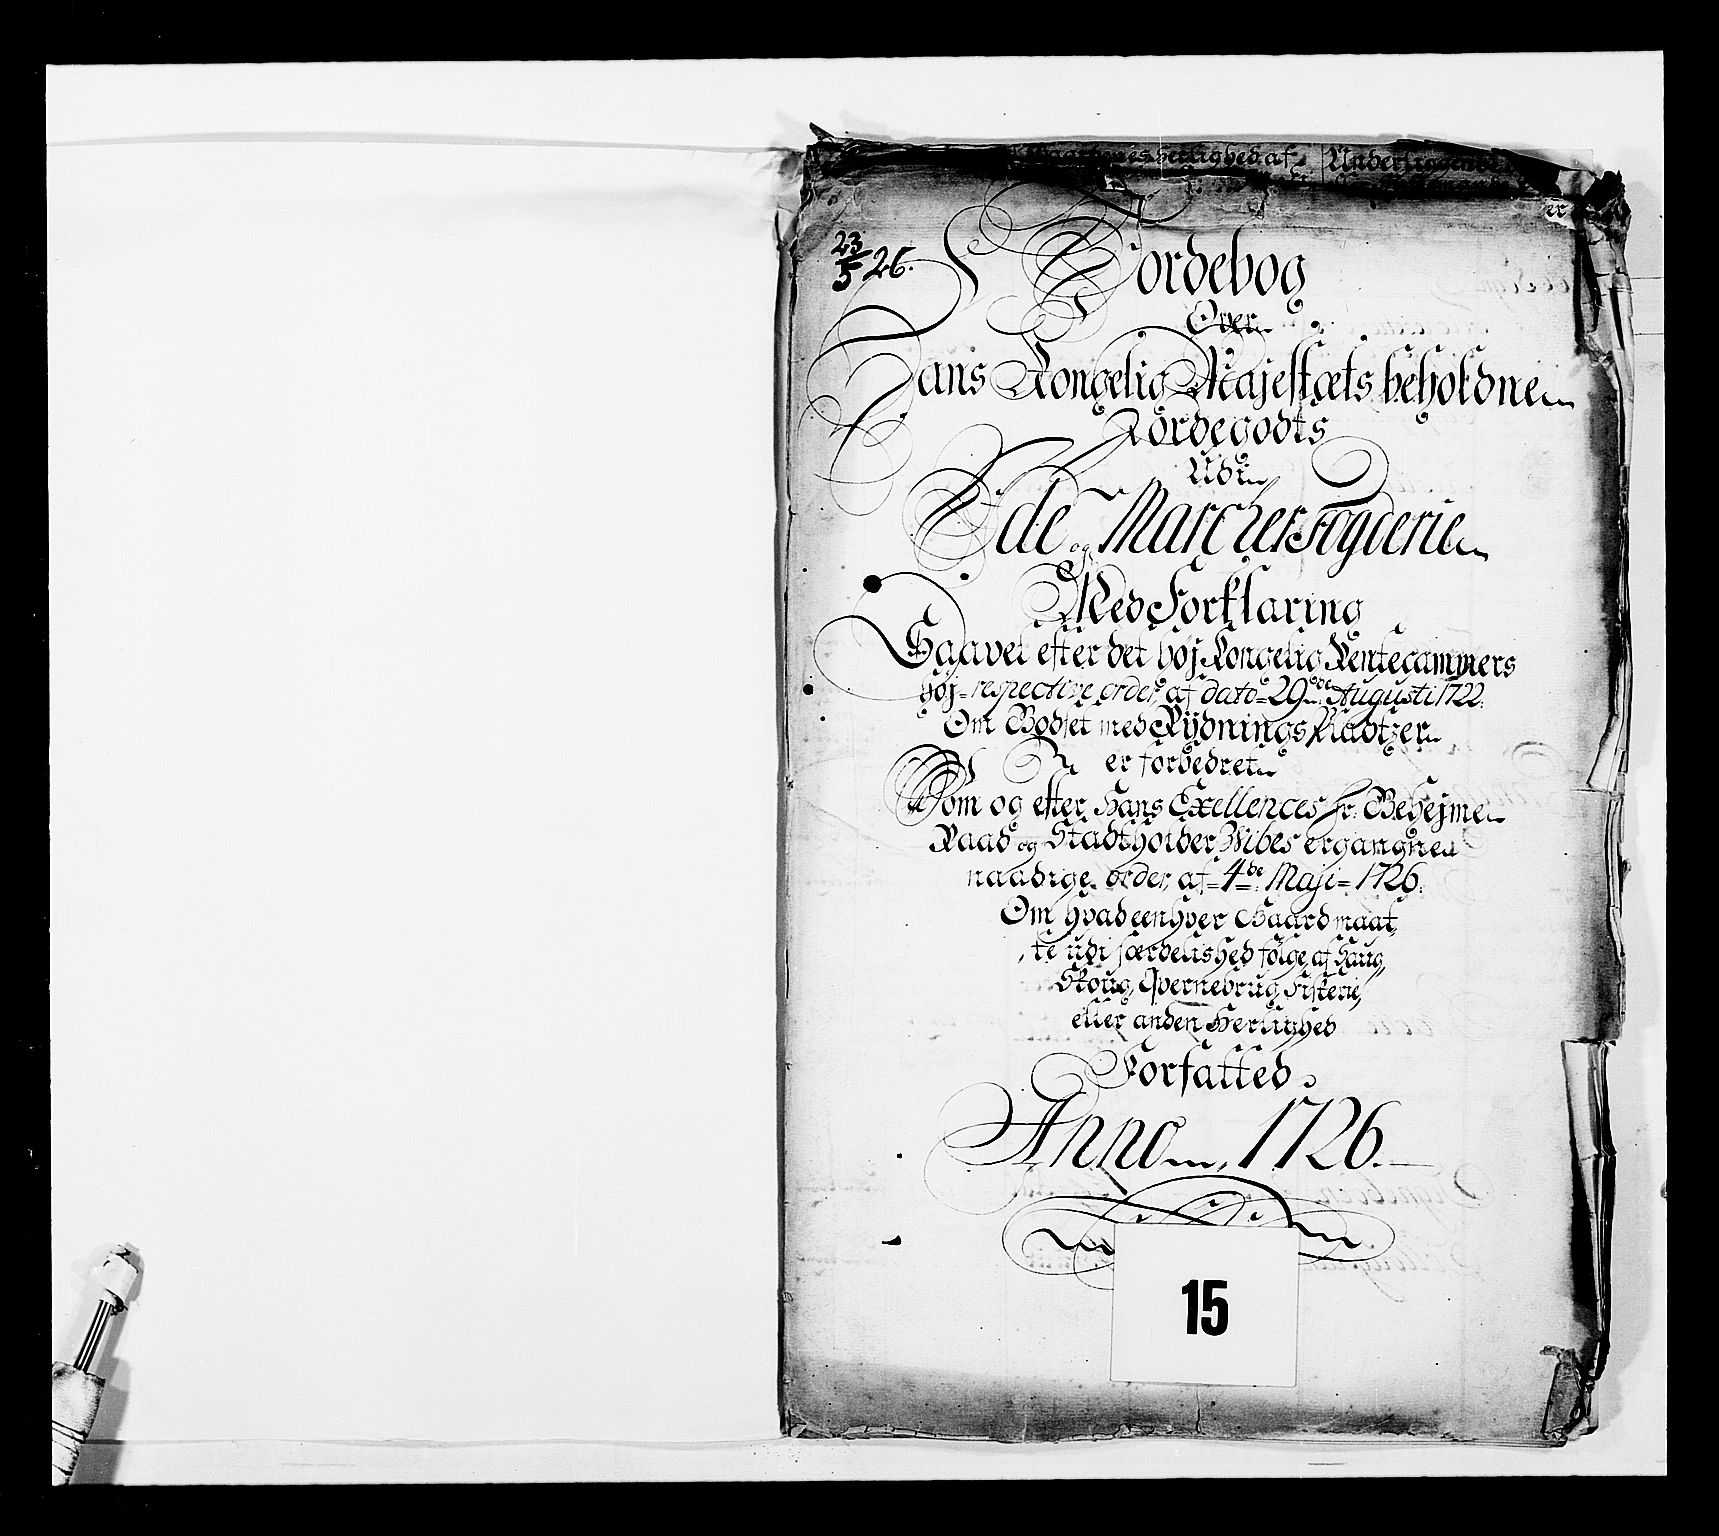 23/5 26.
Jordebog
Over
Hans Kongelig Majestæts beholdne
Jordegodts
Udi
Ide og Marcher Fogderie
Med Forklaring
Saavel efter det høj Kongelig Rentecammers
høj-respective order af dato 29de Augusti 1722.
Om Godset med Rydnings Pladtzer
er forbedret
Som og efter Hans Exellences hr: Geheime
Raad og Stadtholder Wibes ergangne
naadige order af 4de Maji 1726.
Om hvad eenhver Gaard maat,
te udi særdelished følge af Haug,
Skoug, Qvernebrug, Fiskerie,
eller anden Herlighed
Forfatted
Anno 1726.
15